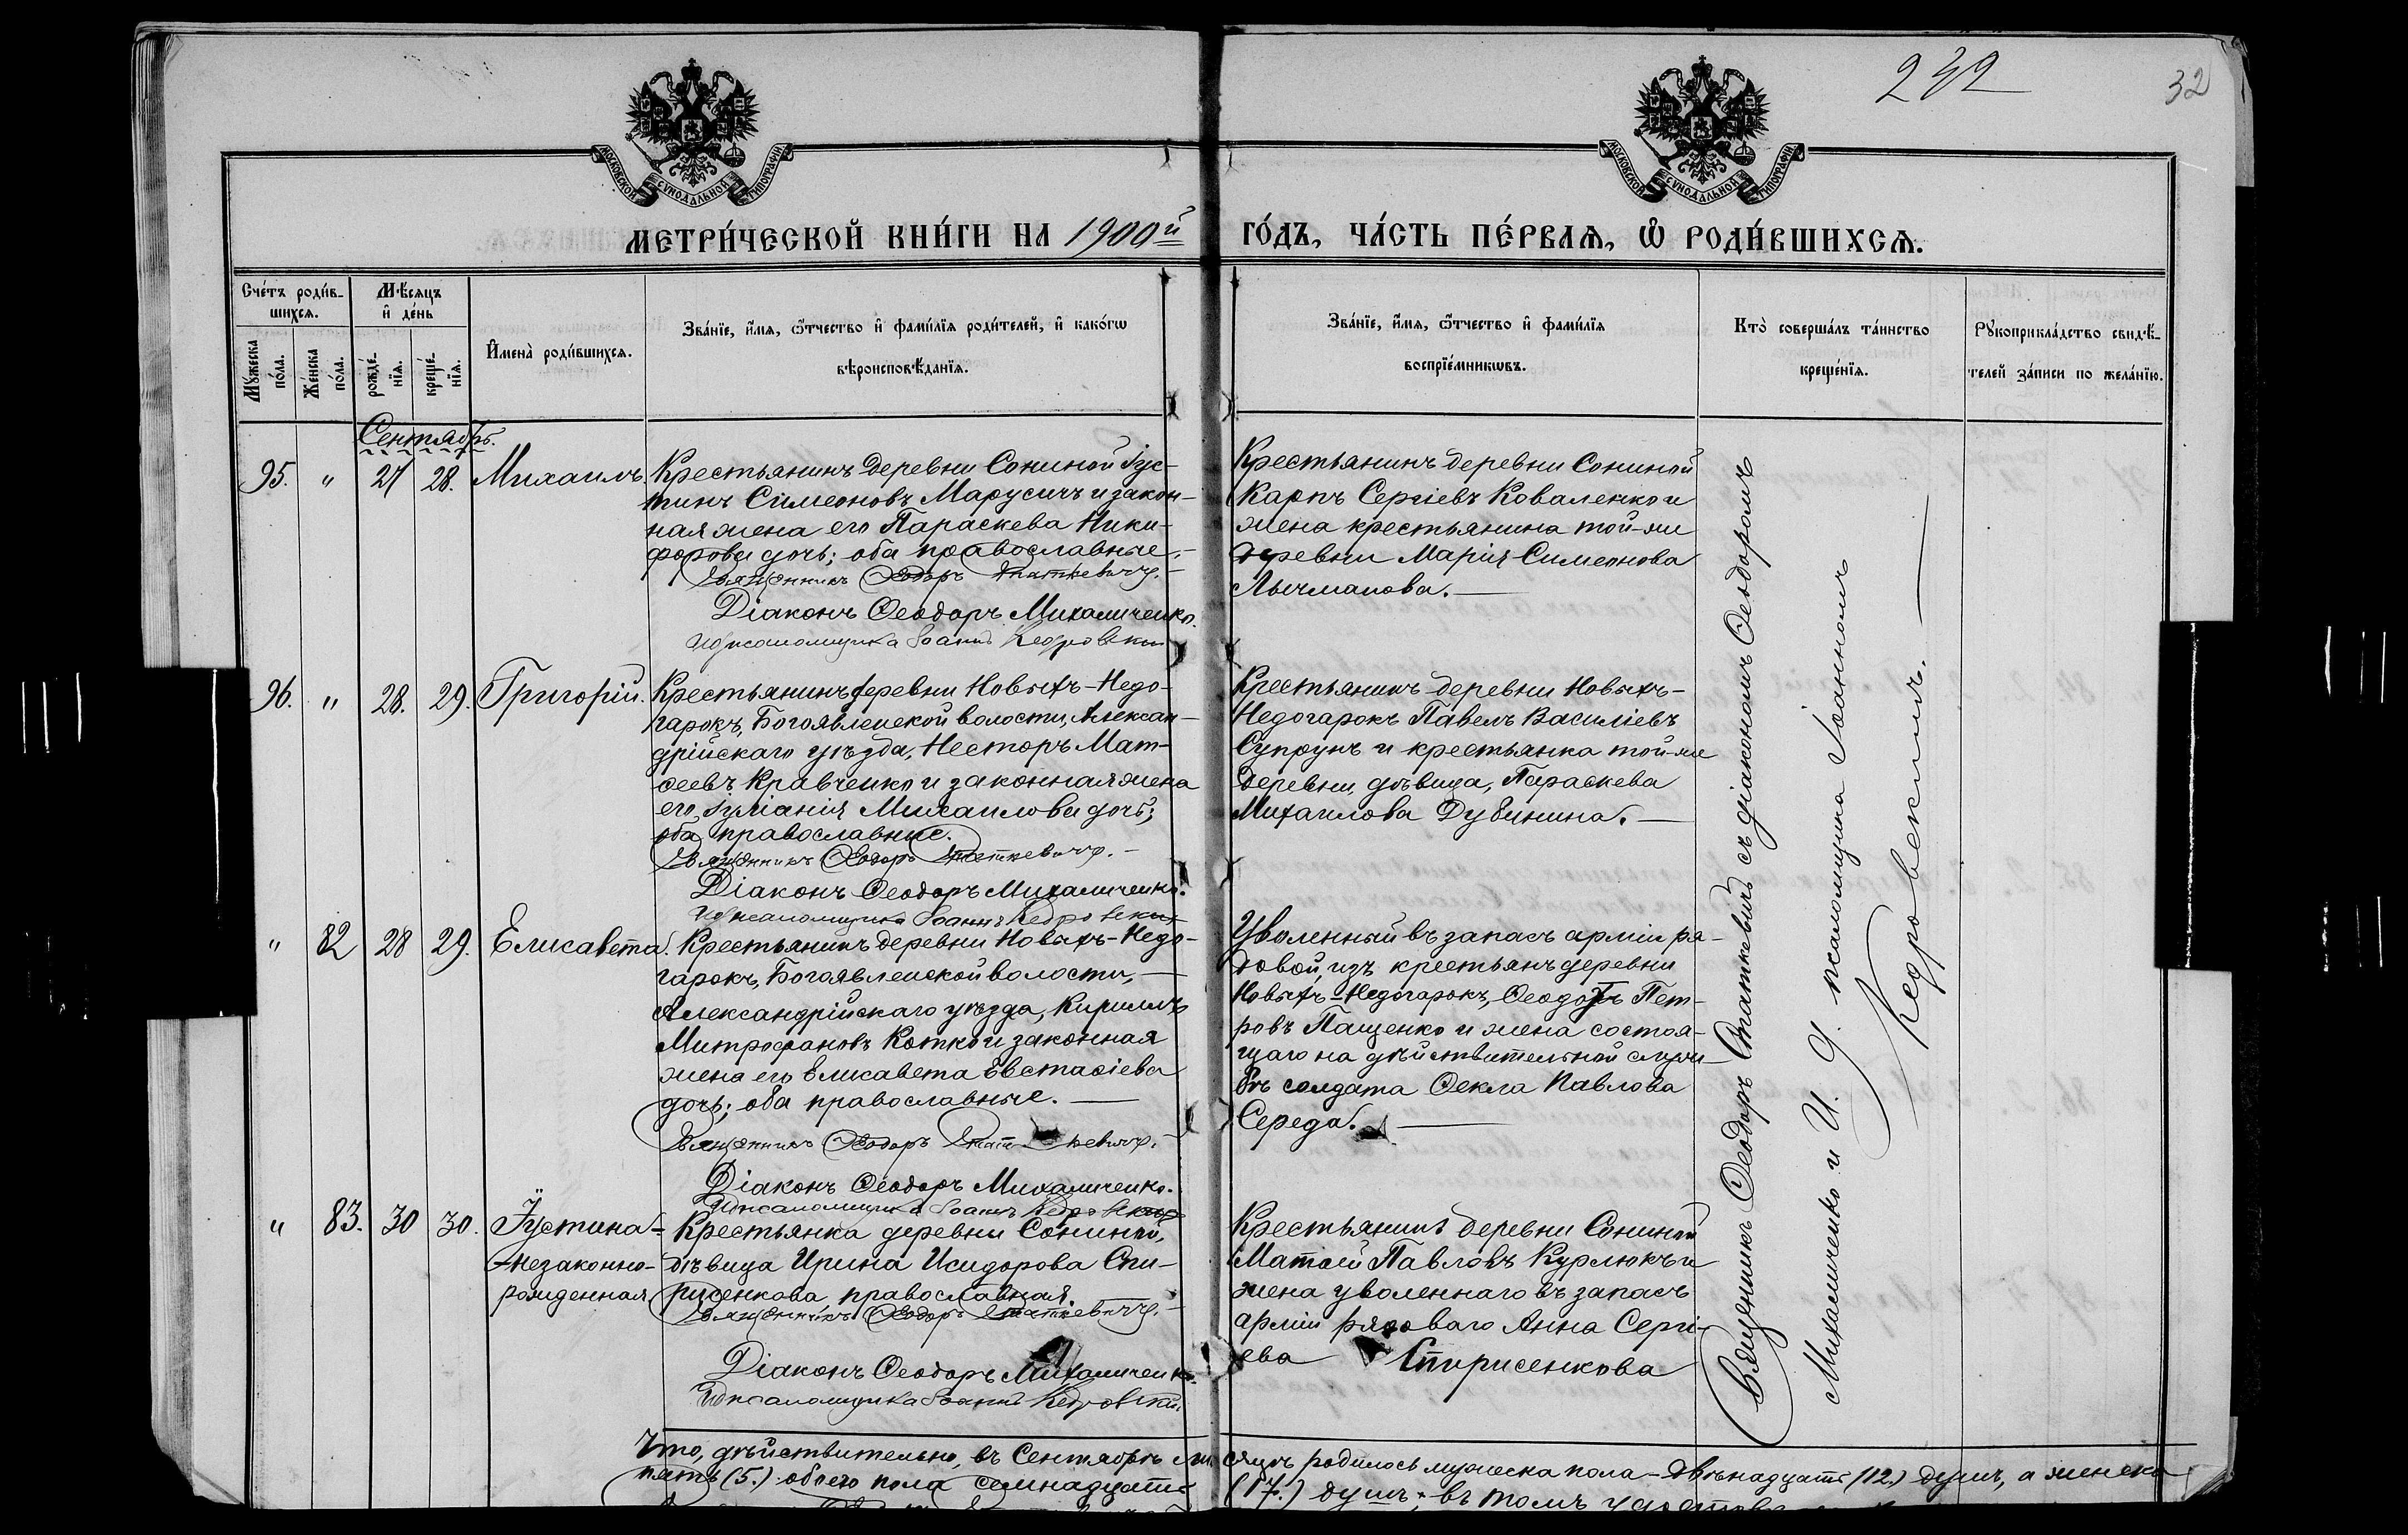 232
32
МОСКОВСКОЙ СѴНОДАЛЬНОЙ ТИПОГРАФІИ
МОСКОВСКОЙ СѴНОДАЛЬНОЙ ТИПОГРАФІИ
МЕТРИ́ЧЕСКОЙ КНИ́ГИ НА 1900й ГО́ДЪ, ЧА́СТЬ ПЕ́РВАѦ, Ѡ҆ РОДИ́ВШИХСѦ.
Сче́тъ роди́в-
шихсѧ.
Мꙋ́жеска по́ла.
Же́нска по́ла.
Мѣ́сяцъ
и҆ де́нь
рожде́-
нїѧ.
креще́-
нїѧ.
И҆мена̀ роди́вшихсѧ.
Зва́нїе, и҆́мѧ, ѻ҆́тчество и҆ фами́лїѧ роди́телей, и҆ како́гѡ
вѣроисповѣ́данїѧ.
Зва́нїе, и҆́мѧ, ѻ҆́тчество и҆ фами́лїѧ
воспрїе́мникѡвъ.
Кто̀ соверша́лъ та́инство
креще́нїѧ.
Рꙋкоприкла́дство свидѣ́-
телей за́писи по жела́нїю.
Сентябрь.
95. " 27 28. Михаилъ.
Крестьянинъ деревни Сониной Іус-
тинъ Симеоновъ Марусичъ и закон-
ная жена его Параскева Ники-
форова дочь; оба православные.-
Священникъ Ѳеодоръ Спаткевичъ.-
Діаконъ Ѳеодоръ Михаличенко.
И д псаломщика Іоаннъ Кедровскій
Крестьянинъ деревни Сониной
Карпъ Сергіевъ Коваленко и
жена крестьянина той-же
деревни Марія Симеонова
Лычманова.
96. " 28. 29. Григорій.
Крестьянинъ деревни Новыхъ-Недо-
гарокъ, Богоявленской волости, Алексан-
дрійскаго уѣзда, Несторъ Мат-
ѳеевъ Кравченко и законная жена
его Іуліанія Михаилова дочь;
оба православные.
Священникъ Ѳеодоръ Спаткевичъ.-
Діаконъ Ѳеодоръ Михаличенко.
И д псаломщика Іоаннъ Кедровскій
Крестьянинъ деревни Новыхъ-
Недогарокъ Павелъ Василіевъ
Супрунъ и крестьянка той-же
деревни, дѣвица, Параскева
Михаилова Дубинина.
" 82 28 29. Елисавета.
Крестьянинъ деревни Новыхъ-Недо-
гарокъ, Богоявленской волости,
Александрійскаго уѣзда, Кириллъ
Митрофановъ Котко и законная
жена его Елисавета Евстаѳіева
дочь; оба православные.
Священникъ Ѳеодоръ Спаткевичъ.-
Діаконъ Ѳеодоръ Михаличенко.
И д псаломщика Іоаннъ Кедровскій
Уволенный въ запасъ арміи ря-
довой, изъ крестьянъ деревни
Новыхъ-Недогарокъ, Ѳеодоръ Пет-
ровъ Пащенко и жена состоя-
щаго на дѣйствительной служ-
бѣ солдата Ѳекла Павлова
Середа.
" 83. 30 30. Іустина-
незаконно-
рожденная
Крестьянка деревни Сониной,
дѣвица Ирина Исидорова Спи-
рисенкова, православная.
Священникъ Ѳеодоръ Спаткевичъ.-
Діаконъ Ѳеодоръ Михаличенко.
И д псаломщика Іоаннъ Кедровскій
Крестьянинъ деревни Сониной
Матѳей Павловъ Курлюкъ и
жена уволеннаго въ запасъ
арміи рядоваго Анна Сергі-
ева Спирисенкова
Священникъ Ѳеодоръ Спаткевичъ съ діакономъ Ѳеодоромъ
Михаличенко и И. д. псаломщика Іоанномъ
Кедровскимъ.
Что, дѣйствительно, въ Сентябрѣ мѣсяцѣ родилось мужеска пола - двѣнадцать (12.) душъ, а женска
пять (5.) обоего пола семнадцать (17.) душъ; въ томъ